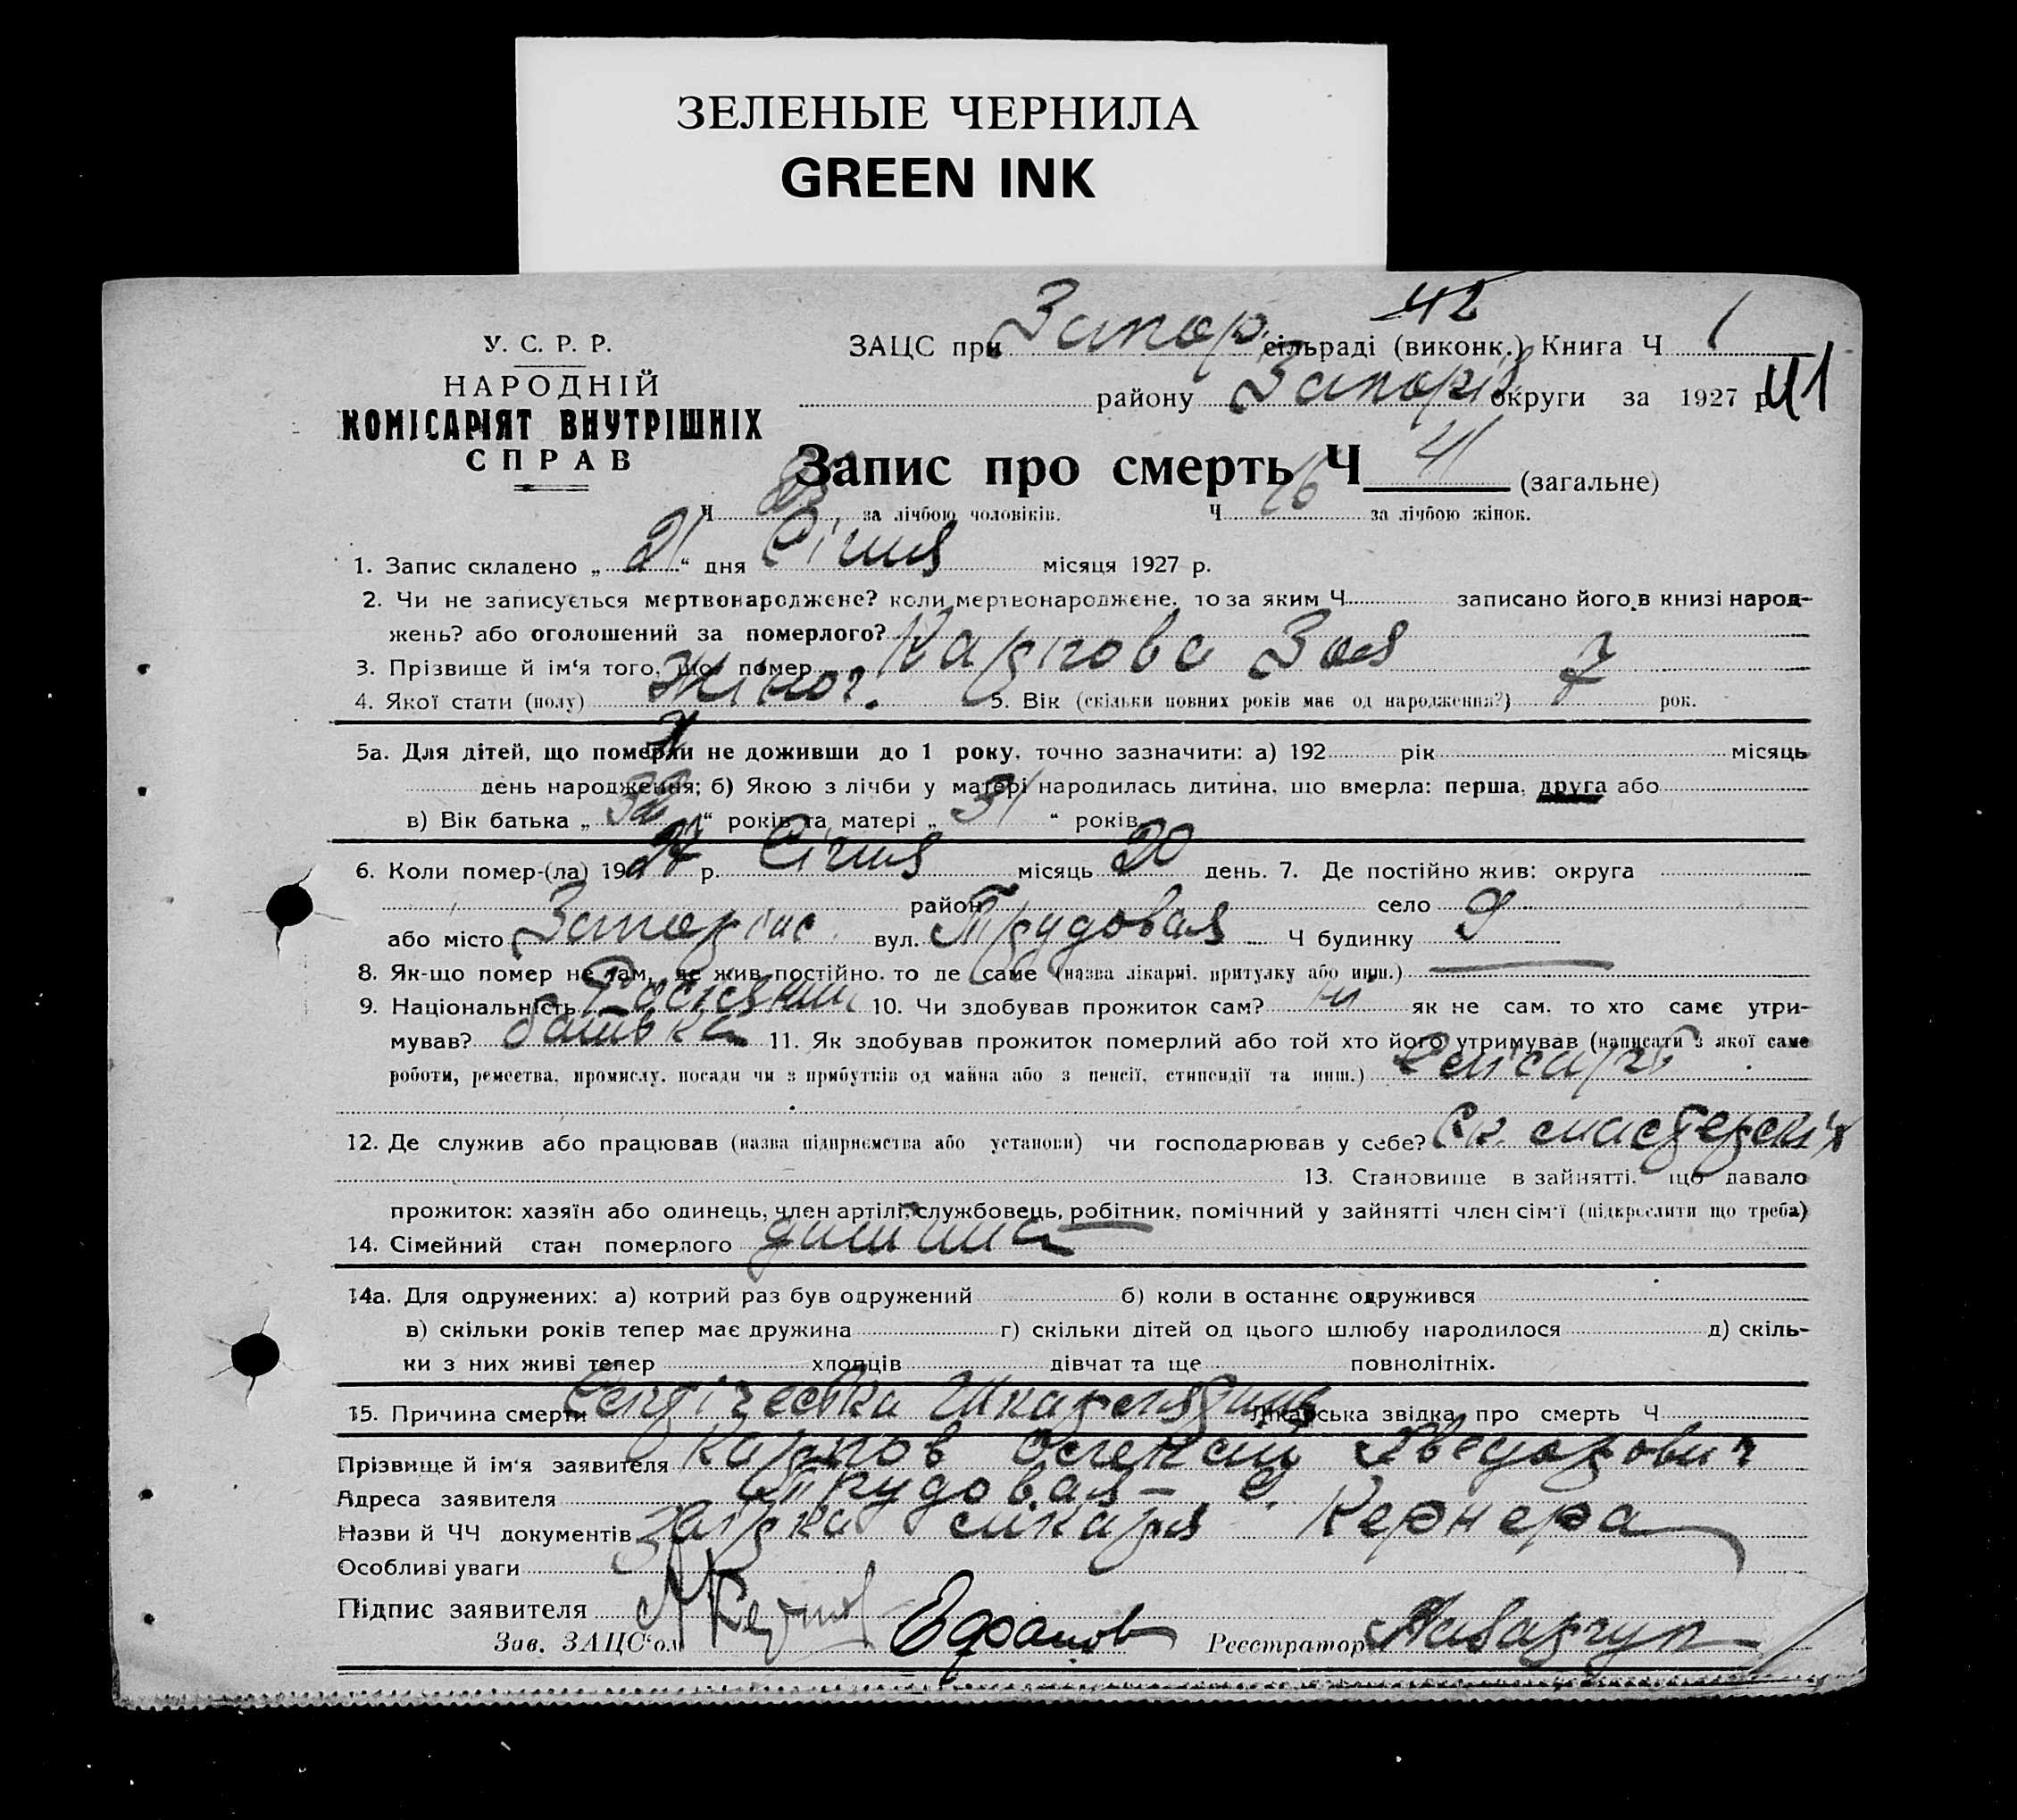 ЗЕЛЕНЫЕ ЧЕРНИЛА
GREEN INK
42
У. С. Р. Р.
НАРОДНІЙ
КОМІСАРІЯТ ВНУТРІШНІХ
СПРАВ
ЗАЦС при Запор. сільраді (виконк.) Книга Ч 1
району Запоріз округи за 1927 р. 41
Запис про смерть Ч 41 (загальне)
Ч за лічбою чоловіків. Ч 16 за лічбою жінок.
1. Запис складено „21“ дня Січня місяця 1927 р.
2. Чи не записується мертвонароджене? коли мертвонароджене, то за яким Ч записано його в книзі народ-
жень? або оголошений за померлого?
3. Прізвище й ім'я того, що помер Карпова Зоя
4. Якої стати (полу) Жіноч. 5. Вік (скільки повних років має од народження?) 7 рок.
5а. Для дітей, що померли не доживши до 1 року, точно зазначити: а) 192 рік місяць
день народження; б) Якою з лічби у матері народилась дитина, що вмерла: перша, друга або
в) Вік батька „32“ років та матері „31“ років
6. Коли помер-(ла) 1927 р. Січня місяць 20 день. 7. Де постійно жив: округа
район село
або місто Запоріжє вул. Трудовая Ч будинку 9
8. Як-що помер не там, де жив постійно, то де саме (назва лікарні, притулку або инш.)
9. Національність 10. Чи здобував прожиток сам? ні як не сам, то хто саме утри-
мував? батько 11. Як здобував прожиток померлий або той хто його утримував (написати з якої саме
роботи, ремества, промислу, посади чи з прибутків од майна або з пенсії, стипендії та инш.)
12. Де служив або працював (назва підприємства або установи) чи господарював у себе?
13. Становище в зайнятті, що давало
прожиток: хазяїн або одинець, член артілі, службовець, робітник, помічний у зайнятті член сім'ї (підкреслити що треба)
14. Сімейний стан померлого дитина
14а. Для одружених: а) котрий раз був одружений б) коли в останнє одружився
в) скільки років тепер має дружина г) скільки дітей од цього шлюбу народилося д) скіль-
ки з них живі тепер хлопців дівчат та ще повнолітніх.
15. Причина смерти Септічеська Шкарлятина Лікарська звідка про смерть Ч
Прізвище й ім'я заявителя Карпов Хведорович
Адреса заявителя Трудовая – 9
Назви й ЧЧ документів лікаря Кернера
Особливі уваги
Підпис заявителя
Зав. ЗАЦС'ом Ефанов Реєстратор